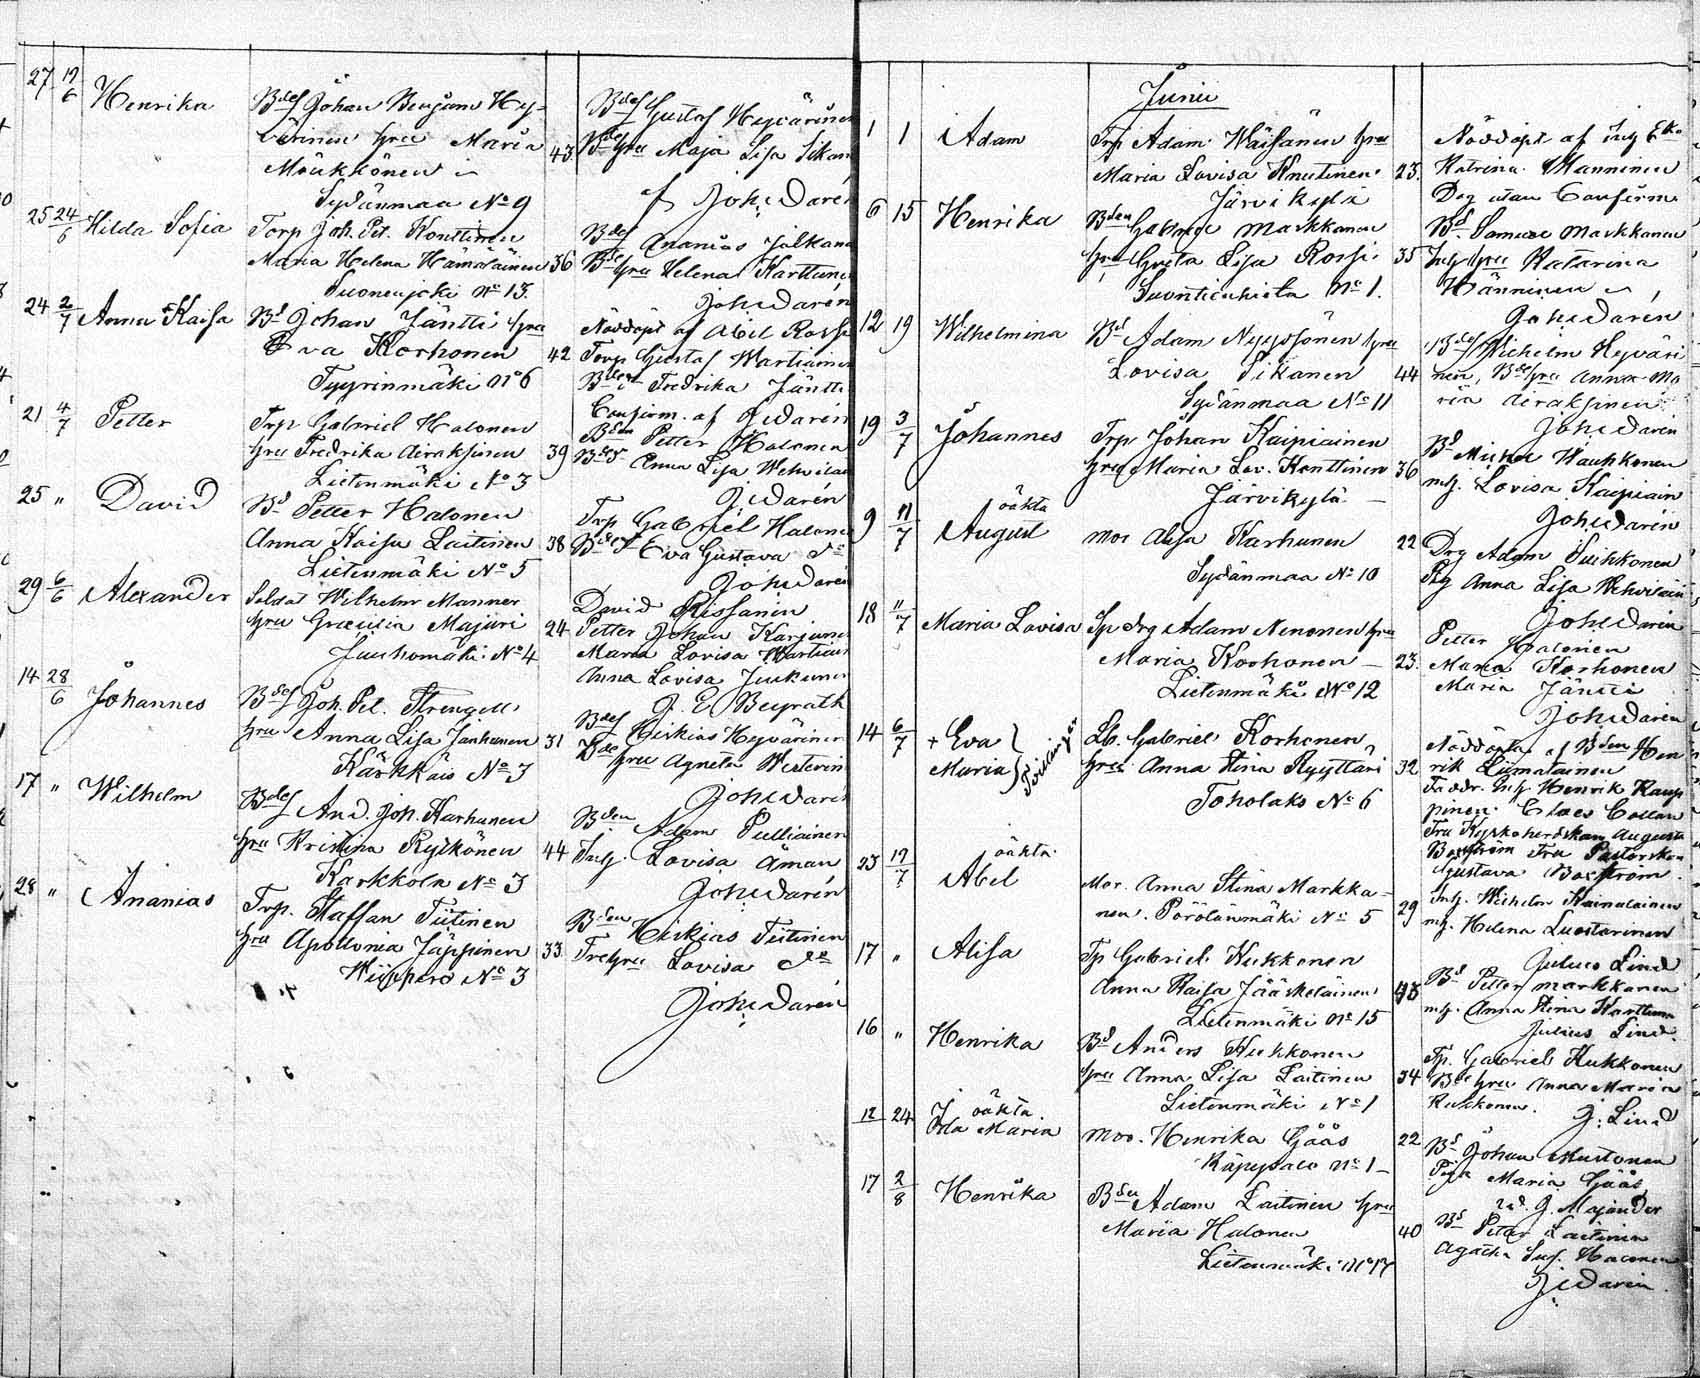 27 19/6 Henrika Bdes Johan Benjam Hy-
värinen hru Maria 43.
Mönkkönen
Sydänmaa No 9
Bdes Gustaf Hyvärinen
Bde hru Maja Lisa
Joh: Darén
25 24/6 Hilda Sofia Torp Joh. Pet. Konttinen
Maria Helena Hämäläinen 36
Suonenjoki No 13.
Bdes Ananias Jalkanen
Bde hru Helena Karttunen
Joh: Darén
24 2/7 Anna Kaisa Bd Johan Jäntti hru
Eva Korhonen 42
Tyyrinmäki No 6
Nöddöpt af Abel
Torp Gustaf Wartiainen
Fredrika Jäntti
Confirm. af J. Darén
21 4/7 Petter Trp Gabriel Halonen
hru Fredrika Airaksinen 39
Lietenmäki No 3
Bden Petter Halonen
Anna Lisa
J: Darén
25 " David Bd Petter Halonen
Anna Kaisa Laitinen 38
Lietenmäki No 5
Trp Gabriel Halonen
Eva Gustava Do
Joh: Darén
29 6/6 Alexander Soldat Wilhelm Manner
hru Majuri 24
No 4
David Rissanen
Petter Johan
Maria Lovisa Wartiain
Anna Lovisa
J. E. Beyrath
14 28/6 Johannes Bdes Joh. Pet. Strengell
hru Anna Lisa Janhunen 31
No 3
Bdes Hiskias Hyvärinen
Bde hru Agneta
Joh: Darén
17 " Wilhelm Bdes And. Joh. Karhunen
hru Kristina Rytkönen 44
Karkkola No 3
Bden Adam Pulliainen
Inh. Lovisa Åman
Joh: Darén
28 " Ananias Trp. Staffan Tiitinen
hru Apollonia Jäppinen 33
No 3
Bden Hiskias Tiitinen
Lovisa Do
Joh: Darén
Junii
1 1 Adam Trp Adam Wäisänen hru
Maria Lovisa Knutinen 23.
Järvikylä
Nöddöpt af
Katrina Manninen
Dog utan Confirm.
6 15 Henrika Bden Gabriel Markkanen
hru Greta Lisa Rossi 35
No 1.
Bd. Samuel Markkanen
Inh hru Katarina
Hänninen
Joh: Darén
12 19 Wilhelmina Bd Adam Nyyssönen hru
Lovisa Sikanen 44
Sydänmaa No 11
Bdes Wilhelm Hyväri
nen, Bde hru Anna Ma
ria Airaksinen
Joh: Darén
19 3/7 Johannes Trp Johan Kaipiainen
hru Maria Lov. Konttinen 36
Järvikylä
Bd Mikel Wauhkonen
mh. Lovisa Kaipiain
Joh: Darén
9 11/7 oäkta
August mor Karhunen 22
Sydänmaa No 10
Drg Adam Suihkonen
Pig Anna Lisa
Joh: Darén
18 11/7 Maria Lovisa Sp drg Adam Nenonen hru
Maria Korhonen 23.
Lietenmäki No 12
Petter Halonen
Maria Korhonen
Maria Jäntti
Joh: Darén
14 6/7 + Eva } Tvillingar
Maria
Lb. Gabriel Korhonen
hru Anna Stina Ryyttäri 32
Toholaks No 6
Nöddöpta af Bden Hen
rik Liimatainen
Faddr. Inh Henrik Kaup
pinen Claes Collan
Fru Kyrkoherdskan Augusta
Boxström Fru Pastorskan
Gustava Boxström.
23 19/7 oäkta
Abel Mor. Anna Stina Markka-
nen. Pörölänmäki No 5 29
Inh. Wilhelm Kainulainen
mh. Helena Luostarinen
Julius Lind
17 " Alisa Tp Gabriel Kukkonen
Anna Kaisa Jääskeläinen 43
Lietenmäki No 15
Bd Petter Markkanen
mh. Anna Stina Karttunen
Julius Lind.
16 " Henrika Bd Anders Kukkonen
hru Anna Lisa Laitinen 34
Lietenmäki No 1
Tp. Gabriel Kukkonen
Bde hru Anna Maria
Kukkonen.
J. Lind
12 24 oäkta.
Ida Maria mor. Henrika Gåås 22
Käpysalo No 1
Bd Johan Mustonen
Piga Maria Gåås
J. Majander
17 2/8 Henrika Bden Adam Laitinen hru
Maria Halonen 40
Lietenmäki No 17
Bd Petter Laitinen
Agatha Halonen
J: Darén